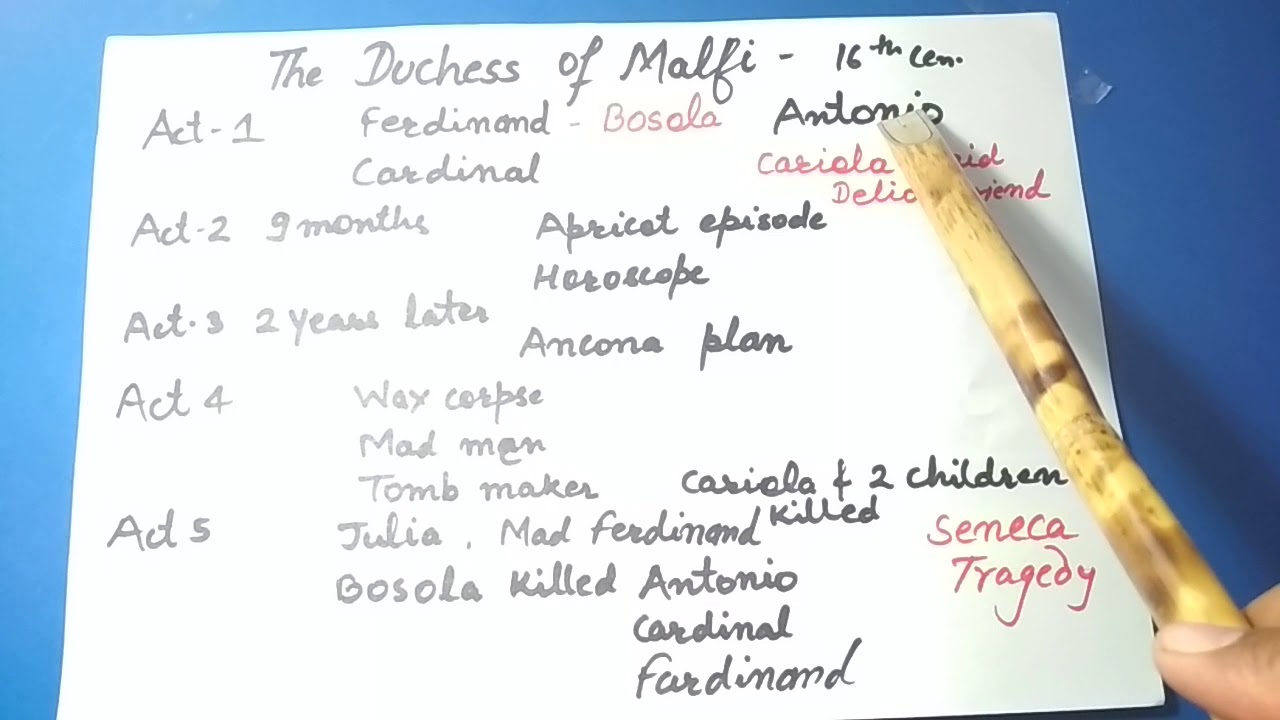 The Duchess of Malfi - 16th Cen.
Act-1 Ferdinand - Bosola Antonio
Cardinal Cariola
Act-2 9 months Apricot episode
Horoscope
Act.3 2 years later
Ancona plan
Act 4 Wax corpse
Mad man
Tomb maker Cariola & 2 children
Killed
Act 5 Julia, Mad Ferdinand
Seneca
Tragedy
Bosola killed Antonio
Cardinal
Fardinand